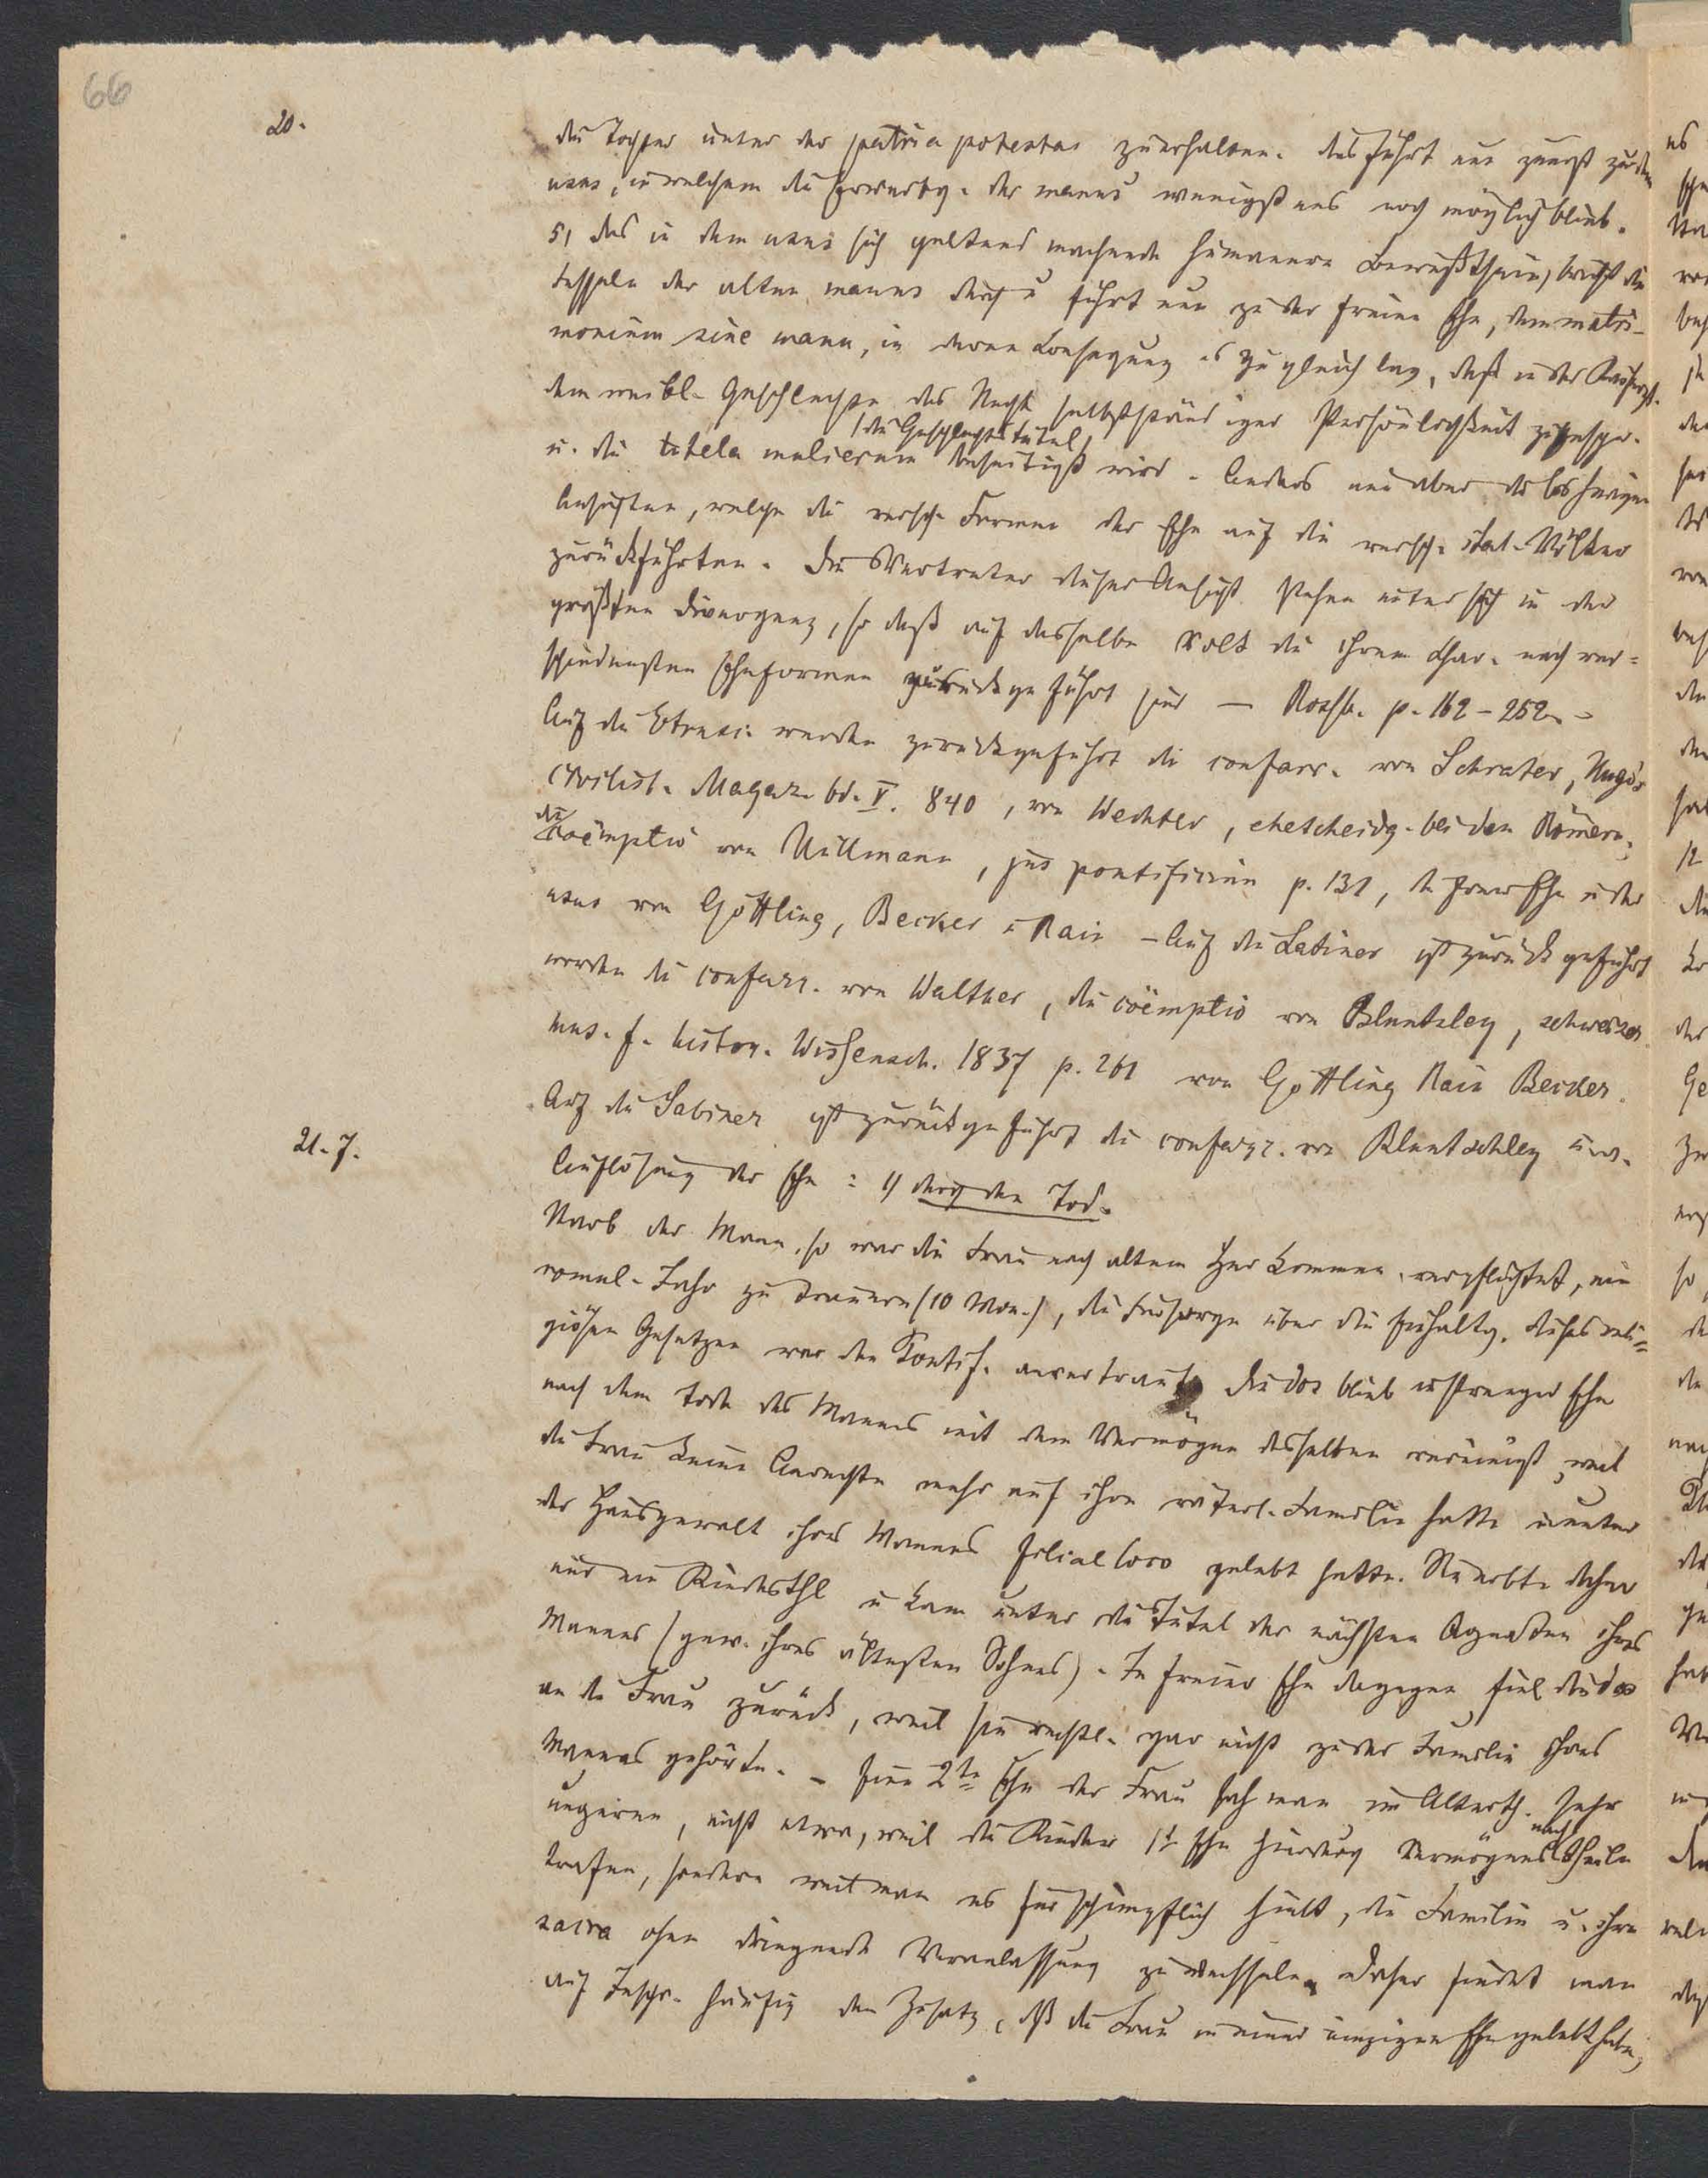 66
20.
die Tochter unter der patria potestas zu erhalten. dies führt nun zuerst zu dem
usus, in welchem die Erwerbg. der manus wenigstens noch möglich blieb.
5, das in dem usus sich geltend machende humanere Bewußtsein, bricht die
Fesseln der alten manus durch u führt nun zu der freien Ehe, dem matri-
monium sine manu, in deren Consequenz es zugleich lag, daß in der Kaiserzt.
dem weibl. Geschlechte das Recht selbstständiger Persönlichkeit zugespr.
u. die tutela mulierum (die Geschlechtstutel) beseitigt wird. Anders nun aber die bisherigen
Ansichten, welche die versch. Formen der Ehe auf die versch. ital. Völker
zurückführten. Die Vertreter dieser Ansicht stehen unter sich in der
größten Divergenz, so daß auf dasselbe Volk die ihrem Char. nach ver=
schiedensten Eheformen zurückgeführt sind — Rossb. p. 162-252. -
Auf die Etrusc. werden zurückgeführt die confarr. von Schrater, Hugo's
civilist. Magaz. bd. V. 840, von Wechter, ehescheidg. bei den Römern;
die coëmptio von Hüllmann, jus pontificium p. 131, die freie Ehe u der
usus von Göttling, Becker u Rein - Auf die Latiner ist zurückgeführt
worden die confarr. von Walther, die coëmptio von Bluntzley, schweizer
mus. f. histor. Wissensch. 1837 p. 261 von Göttling Rein Becker.
Auf die Sabiner ist zurückgeführt die confarr. von Bluntschley u.s.w.
21. 7.
Auflösung der Ehe: 1) durch den Tod.
Starb der Mann, so war die Frau nach altem Herkommen verpflichtet, ein
romul. Jahr zu trauern (10 Mon.), die Fürsorge über die Einhaltg. dieses reli=
giösen Gesetzes war den Pontif. anvertraut. Die dos blieb in strenger Ehe
nach dem Tode des Mannes mit dem Vermögen desselben vereinigt, weil
die Frau keine Anrechte mehr auf ihre väterl. Familie hatte u unter
der Hausgewalt ihres Mannes filiae loco gelebt hatte. Sie erbte daher
nur ein Kindesthl u kam unter die Tutel der nächsten Agnaten ihres
Mannes (gew. ihres ältesten Sohnes). In freier Ehe dagegen fiel die dos
an die Frau zurück, weil sie rechtl. gar nicht zu der Familie ihres
Mannes gehörte. - Eine 2te Ehe der Frau sah man im Alterth. sehr
ungeren, nicht etwa, weil die Kinder 1t Ehe hierdurch Vermögensnachtheile
trafen, sondern weil man es für schimpflich hielt, die Familie u. ihre
sacra ohne dringende Veranlassung zu wechseln. Daher findet man
auf Inschr. häufig den Zusatz, daß die Frau in einer einzigen Ehe gelebt habe,